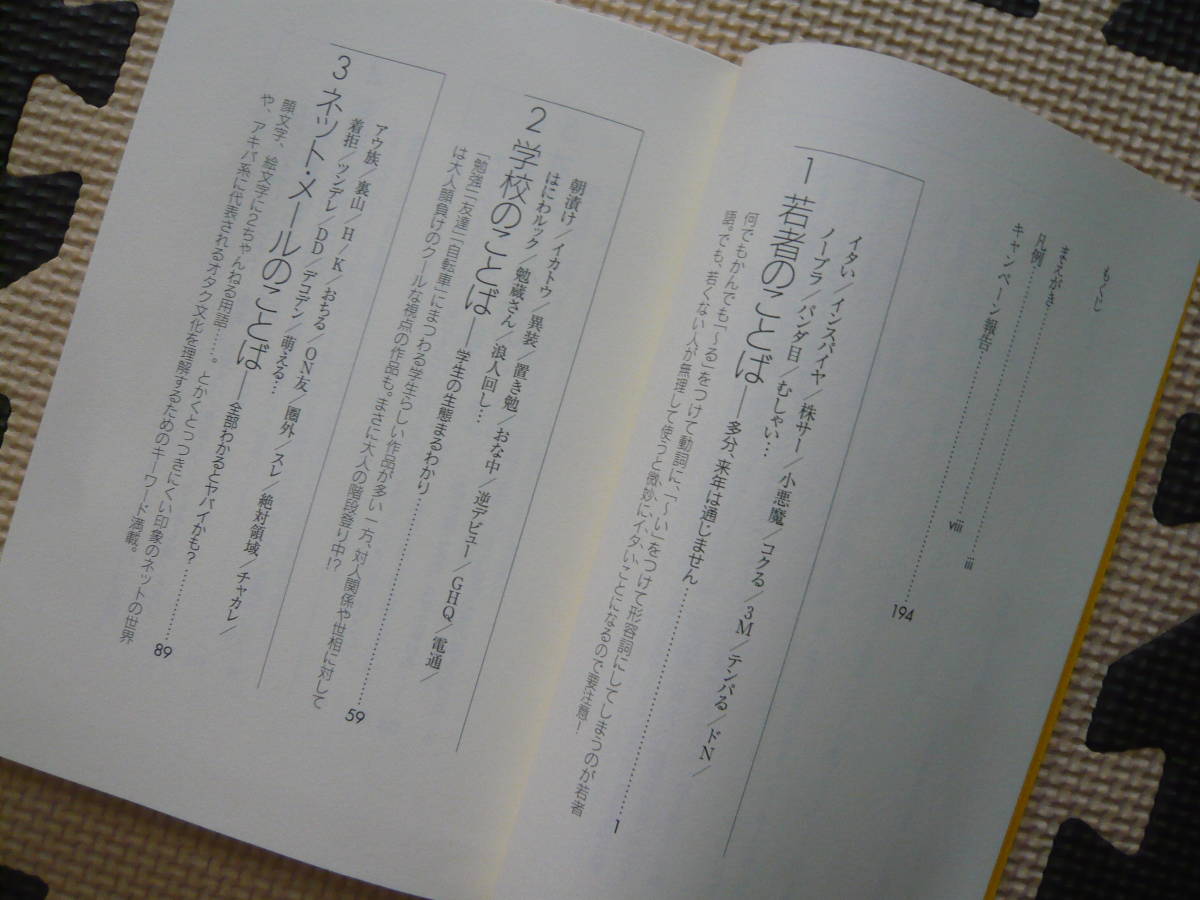 もくじ
まえがき………iii
凡例………viii
キャンペーン報告………194
1 若者のことば――多分、来年は通じません………1
イタい/インスパイヤ/株サー/小悪魔/コクる/3M/テンパる/ドN/
ノーブラ/パンダ目/むしゃい…
何でもかんでも「〜る」をつけて動詞に、「〜い」をつけて形容詞にしてしまうのが若者
語。でも、若くない人が無理して使うと微妙に、イタいことになるので要注意!
2 学校のことば――学生の生態まるわかり………59
朝漬け/イカトウ/異装/置き勉/おな中/逆デビュー/GHQ/電通/
はにわルック/勉蔵さん/浪人回し…
「勉強」「友達」「自転車」にまつわる学生らしい作品が多い一方、対人関係や世相に対して
は大人顔負けのクールな視点の作品も。まさに大人の階段登り中!?
3 ネット・メールのことば――全部わかるとヤバイかも?………89
アウ族/裏山/H/K/おちる/ON友/圏外/スレ/絶対領域/チャカレ/
着拒/ツンデレ/DD/デコデン/萌える…
顔文字、絵文字に2ちゃんねる用語……。とかくとっつきにくい印象のネットの世界
や、アキバ系に代表されるオタク文化を理解するためのキーワード満載。